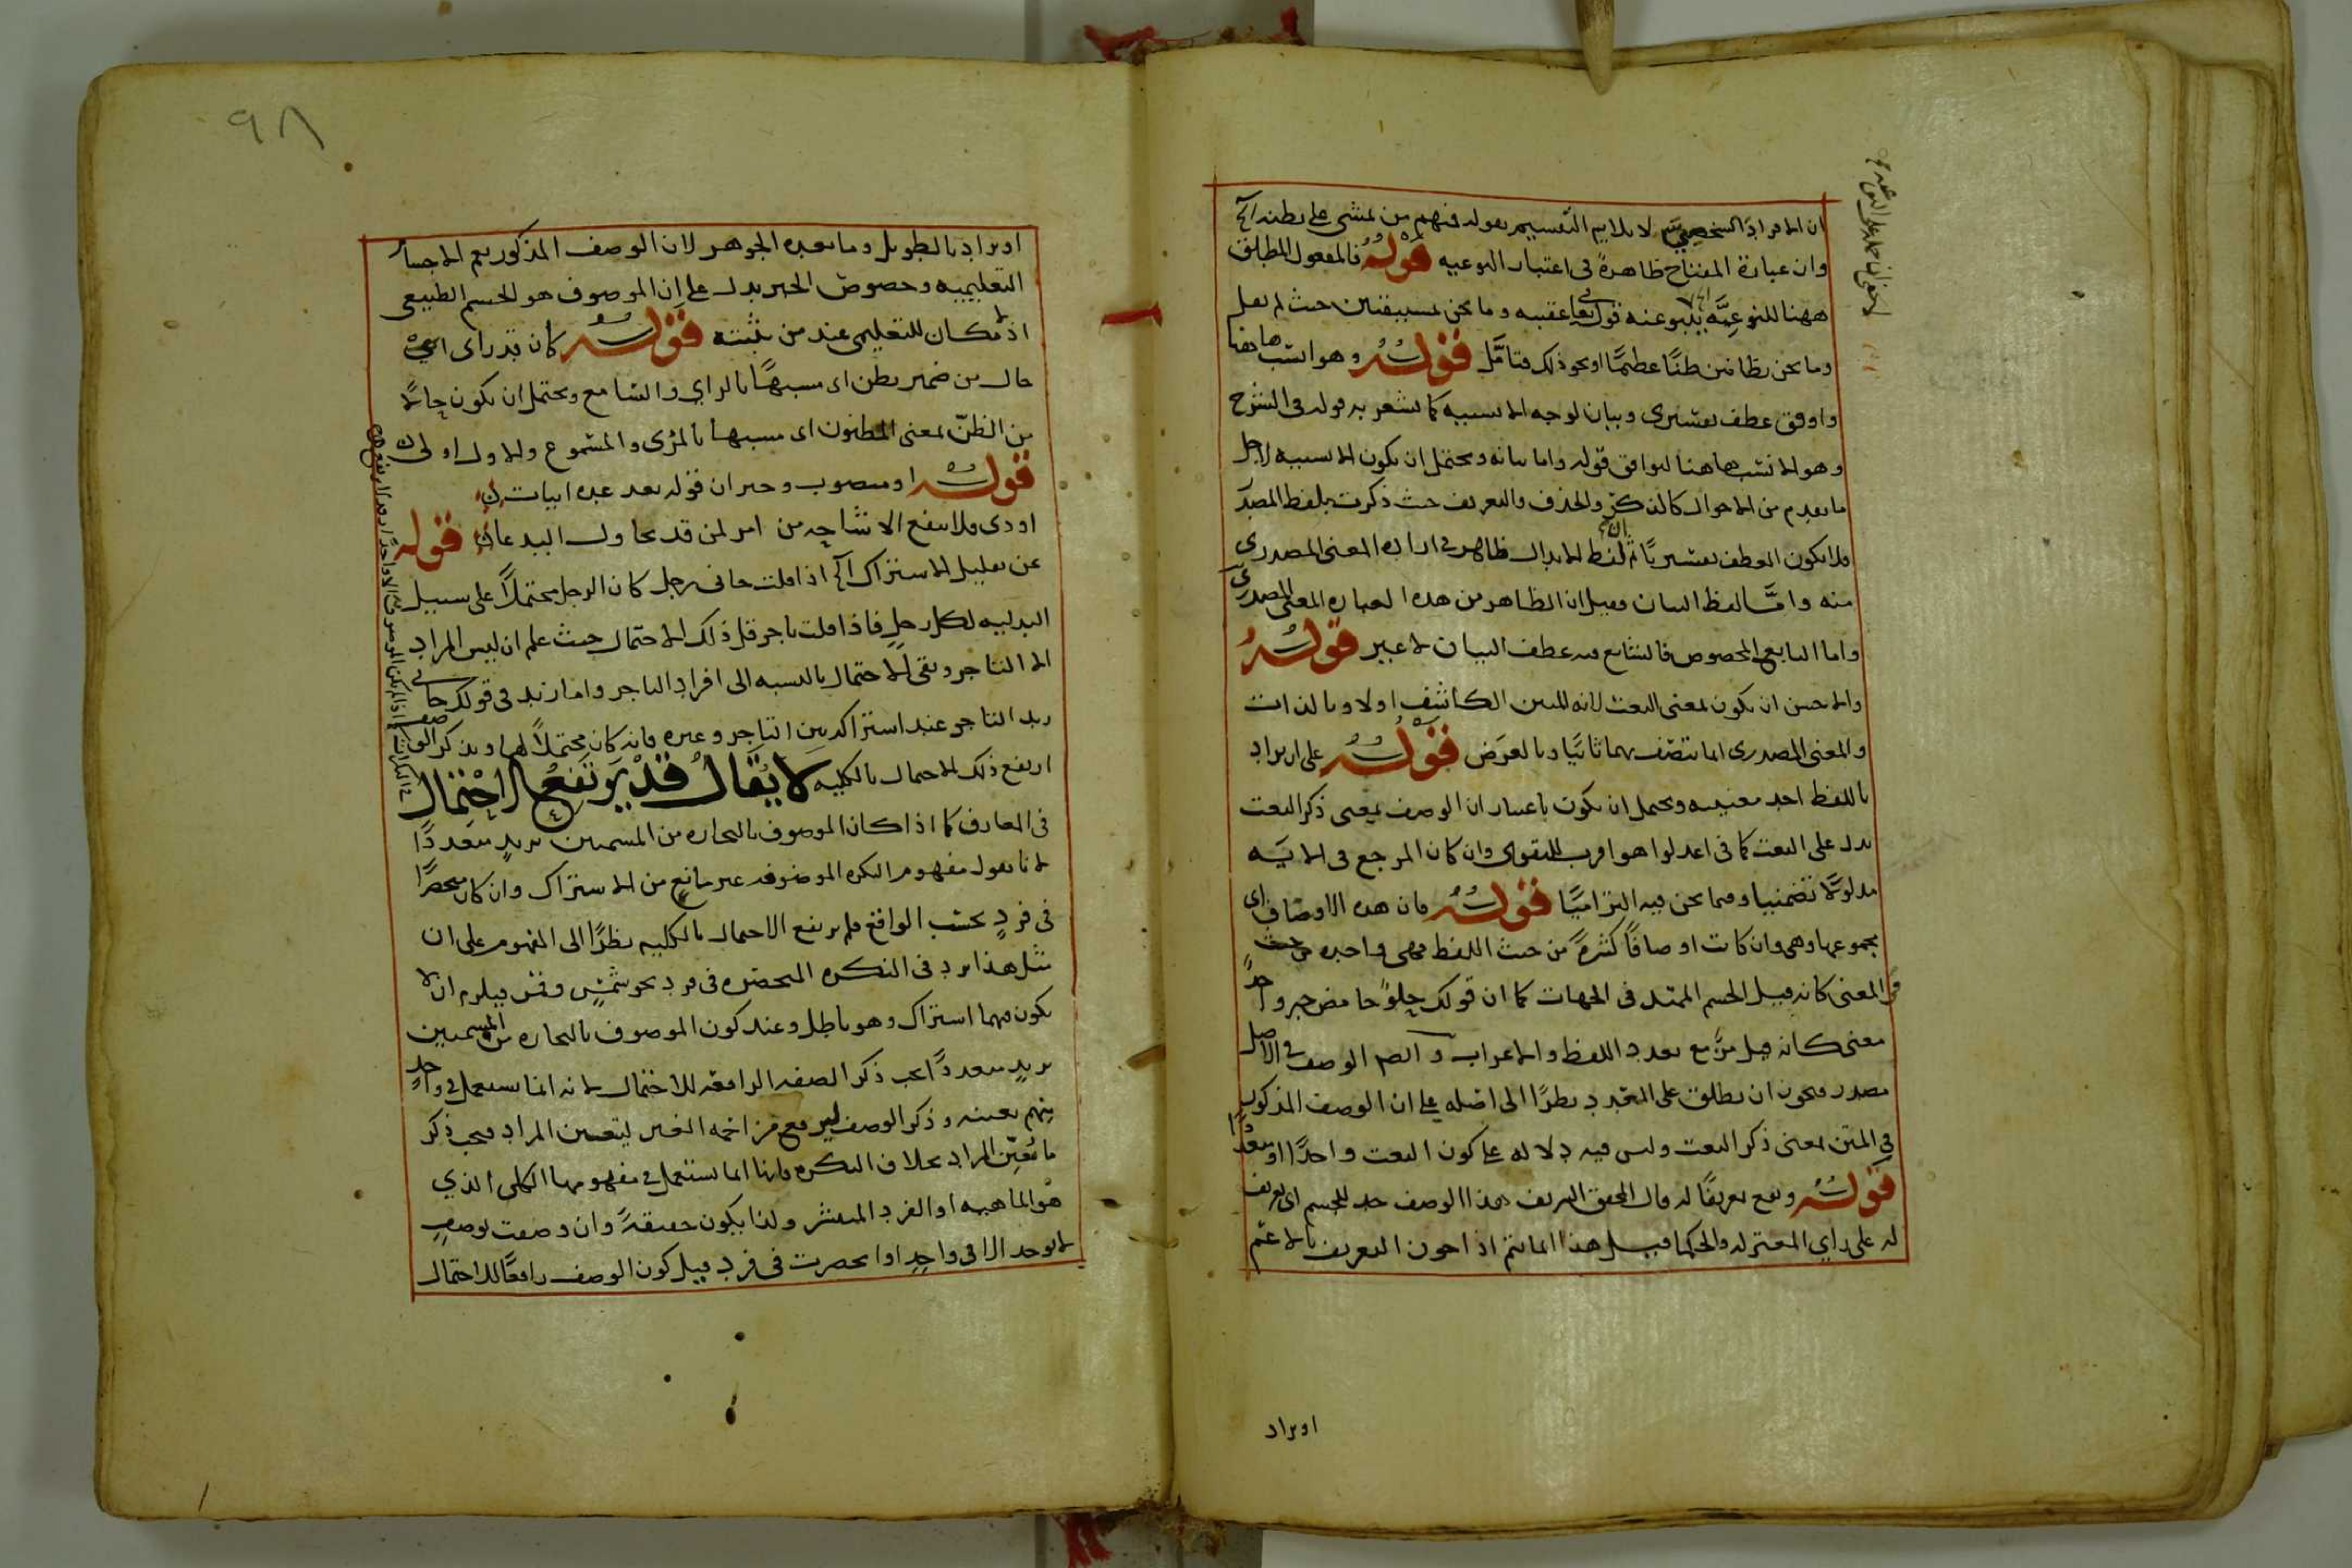 ان الافراد الشخصية لا يلايم التقسيم بقوله فمنهم من يمشي على بطنه الخ
وان عبارة المفتاح ظاهرة في اعتبار النوعيه قوله فالمفعول المطلق
ههنا للنوعية لا ينبو عنه قوله تعالى عقيبه وما نحن بمستيقنين حيث لم يقل
وما نحن بظانين ظنا عظيما او نحو ذلك فتامل قوله وهو انسب هاهنا
واوفق عطف تفسيرى وبيان لوجه الانسبيه كما يشعر به قوله في الشرح
وهو الانسب هاهنا ليوافق قوله واما بيانه ويحتمل ان يكون الانسبيه لاجل
ما تقدم من الاحوال كالذكر والحذف والتعريف حيث ذكرت بلفظ المصدر
فلا يكون العطف تفسيريا ثم لفظ الابدال ظاهر في ارادة المعنى المصدرى
منه واما لفظ البيان فقيل ان الظاهر من هذه العباره المعنى المصدرى
واما التابع المخصوص فالشايع فيه عطف البيان لا غير قوله
والاحسن ان يكون بمعنى النعت لانه المبين الكاشف اولا وبالذات
والمعنى المصدرى انما يتصف بهما ثانيا وبالعرض قوله على ان يراد
باللفظ احد معنييه ويحتمل ان يكون باعتبار ان الوصف بمعنى ذكر النعت
يدل على النعت كما في اعدلوا هو اقرب للتقوى وان كان المرجع في الايه
مدلولا تضمنيا وفيما نحن فيه التزاميا قوله فان هذه الاوصاف اى
مجموعها وهي وان كانت اوصافا كثيرة من حيث اللفظ فهى واحده من حيث
المعنى كانه قيل الجسم الممتد في الجهات كما ان قولك حلو حامض خبر واحد
معنى كانه قيل مز مع تعدد اللفظ والاعراب و الوصف في الاصل
مصدر فيجوز ان يطلق على المتعدد نظرا الى اصله على ان الوصف المذكور
في المتن بمعنى ذكر النعت وليس فيه دلاله على كون النعت واحدا او متعددا
قوله وقع تعريفا له قال المحقق الشريف هذا الوصف حد للجسم اى تعريف
له على راي المعتزله والحكما قيل هذا انما يتم اذا جوز التعريف بالاعم
اويراد
٩٨
اويراد بالطويل وما بعده الجوهر لان الوصف المذكور يعم الاجسام
التعليميه وخصوص الخبر يدل على ان الموصوف هو الجسم الطبيعي
اذ لا مكان للتعليمى عند من يثبته قوله كان قد راى
حال من ضمير يظن اى مشبها بالراي والسامع ويحتمل ان يكون حالا
من الظن بمعنى المظنون اى مشبها بالمرئى والمسموع والاول اولى
قوله او منصوب وخبر ان قوله بعد عده ابيات
اودى فلا تنفع الاشاحه من امر لمن قد يحاول البدعا قوله
عن تقليل الاشتراك الخ اذا قلت جانى رجل كان الرجل محتملا على سبيل
البدليه لكل رجل فاذا قلت تاجر قل ذلك الاحتمال حيث علم ان ليس المراد
الا التاجر وبقى الاحتمال بالنسبه الى افراد التاجر واما زيد في قولك جانى
زيد التاجر عند اشتراكه بين التاجر وغيره فانه كان محتملا لهما وبذكر الوصف
ارتفع ذلك الاحتمال بالكليه لا يقال قد يرتفع الاحتمال
في المعارف كما اذا كان الموصوف بالتجاره من المسمين بزيد متعددا
لانا نقول مفهوم النكره الموصوفه غير مانع من الاشتراك وان كان منحصرا
في فرد بحسب الواقع فلم يرتفع الاحتمال بالكليه نظرا الى المفهوم على ان
مثل هذا يرد في النكره المنحصره في فرد نحو شمس وقمر فيلزم ان لا
يكون فيهما اشتراك وهو باطل وعند كون الموصوف بالتجاره من المسمين
بزيد متعددا يجب ذكر الصفه الرافعه للاحتمال لانه انما يستعمل في واحد
منهم بعينه وذكر الوصف ليرفع مزاحمه الغير ليتعين المراد فيجب ذكر
ما يعين المراد بخلاف النكره فانها انما تستعمل في مفهومها الكلى الذي
هو الماهيه او الفرد المنتشر ولذا يكون حقيقة وان وصفت بوصف
لا يوجد الا في واحد او انحصرت في فرد قيل كون الوصف رافعا للاحتمال